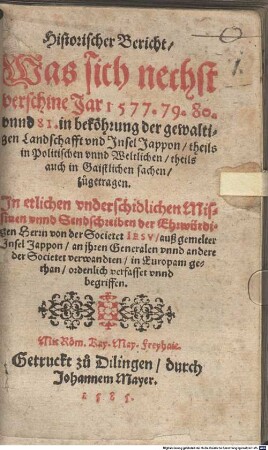 Historischer Bericht/
Was sich nechst
verschine Jar 1577. 79. 80.
vnnd 81. in beköhrung der gewalti-
gen Landschafft vnd Jnsel Jappon/ theils
in Politischen vnnd Weltlichen/ theils
auch in Gaistlichen sachen/
zůgetragen.
Jn etlichen vnderschidlichen Mis-
siuen vnnd Sendschreiben der Ehrwürdi-
gen Herrn von der Societet IESV/ auß gemelter
Jnsel Jappon/ an jhren Generalen vnnd andere
der Societet verwandten/ in Europam ge-
than/ ordenlich verfasset vnnd
begriffen.
Mit Röm. Kay. May. Freyhait.
Getruckt zů Dilingen/ durch
Johannem Mayer.
1585.